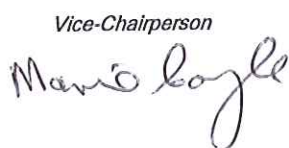 Vice-Chairperson
Mario Coyle